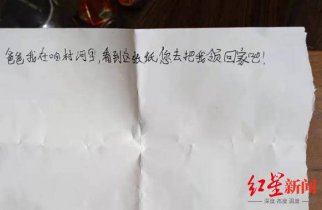 爸爸我在咱村河里,看到这张纸您去把我领回家吧!
红星新闻
深度 态度 温度